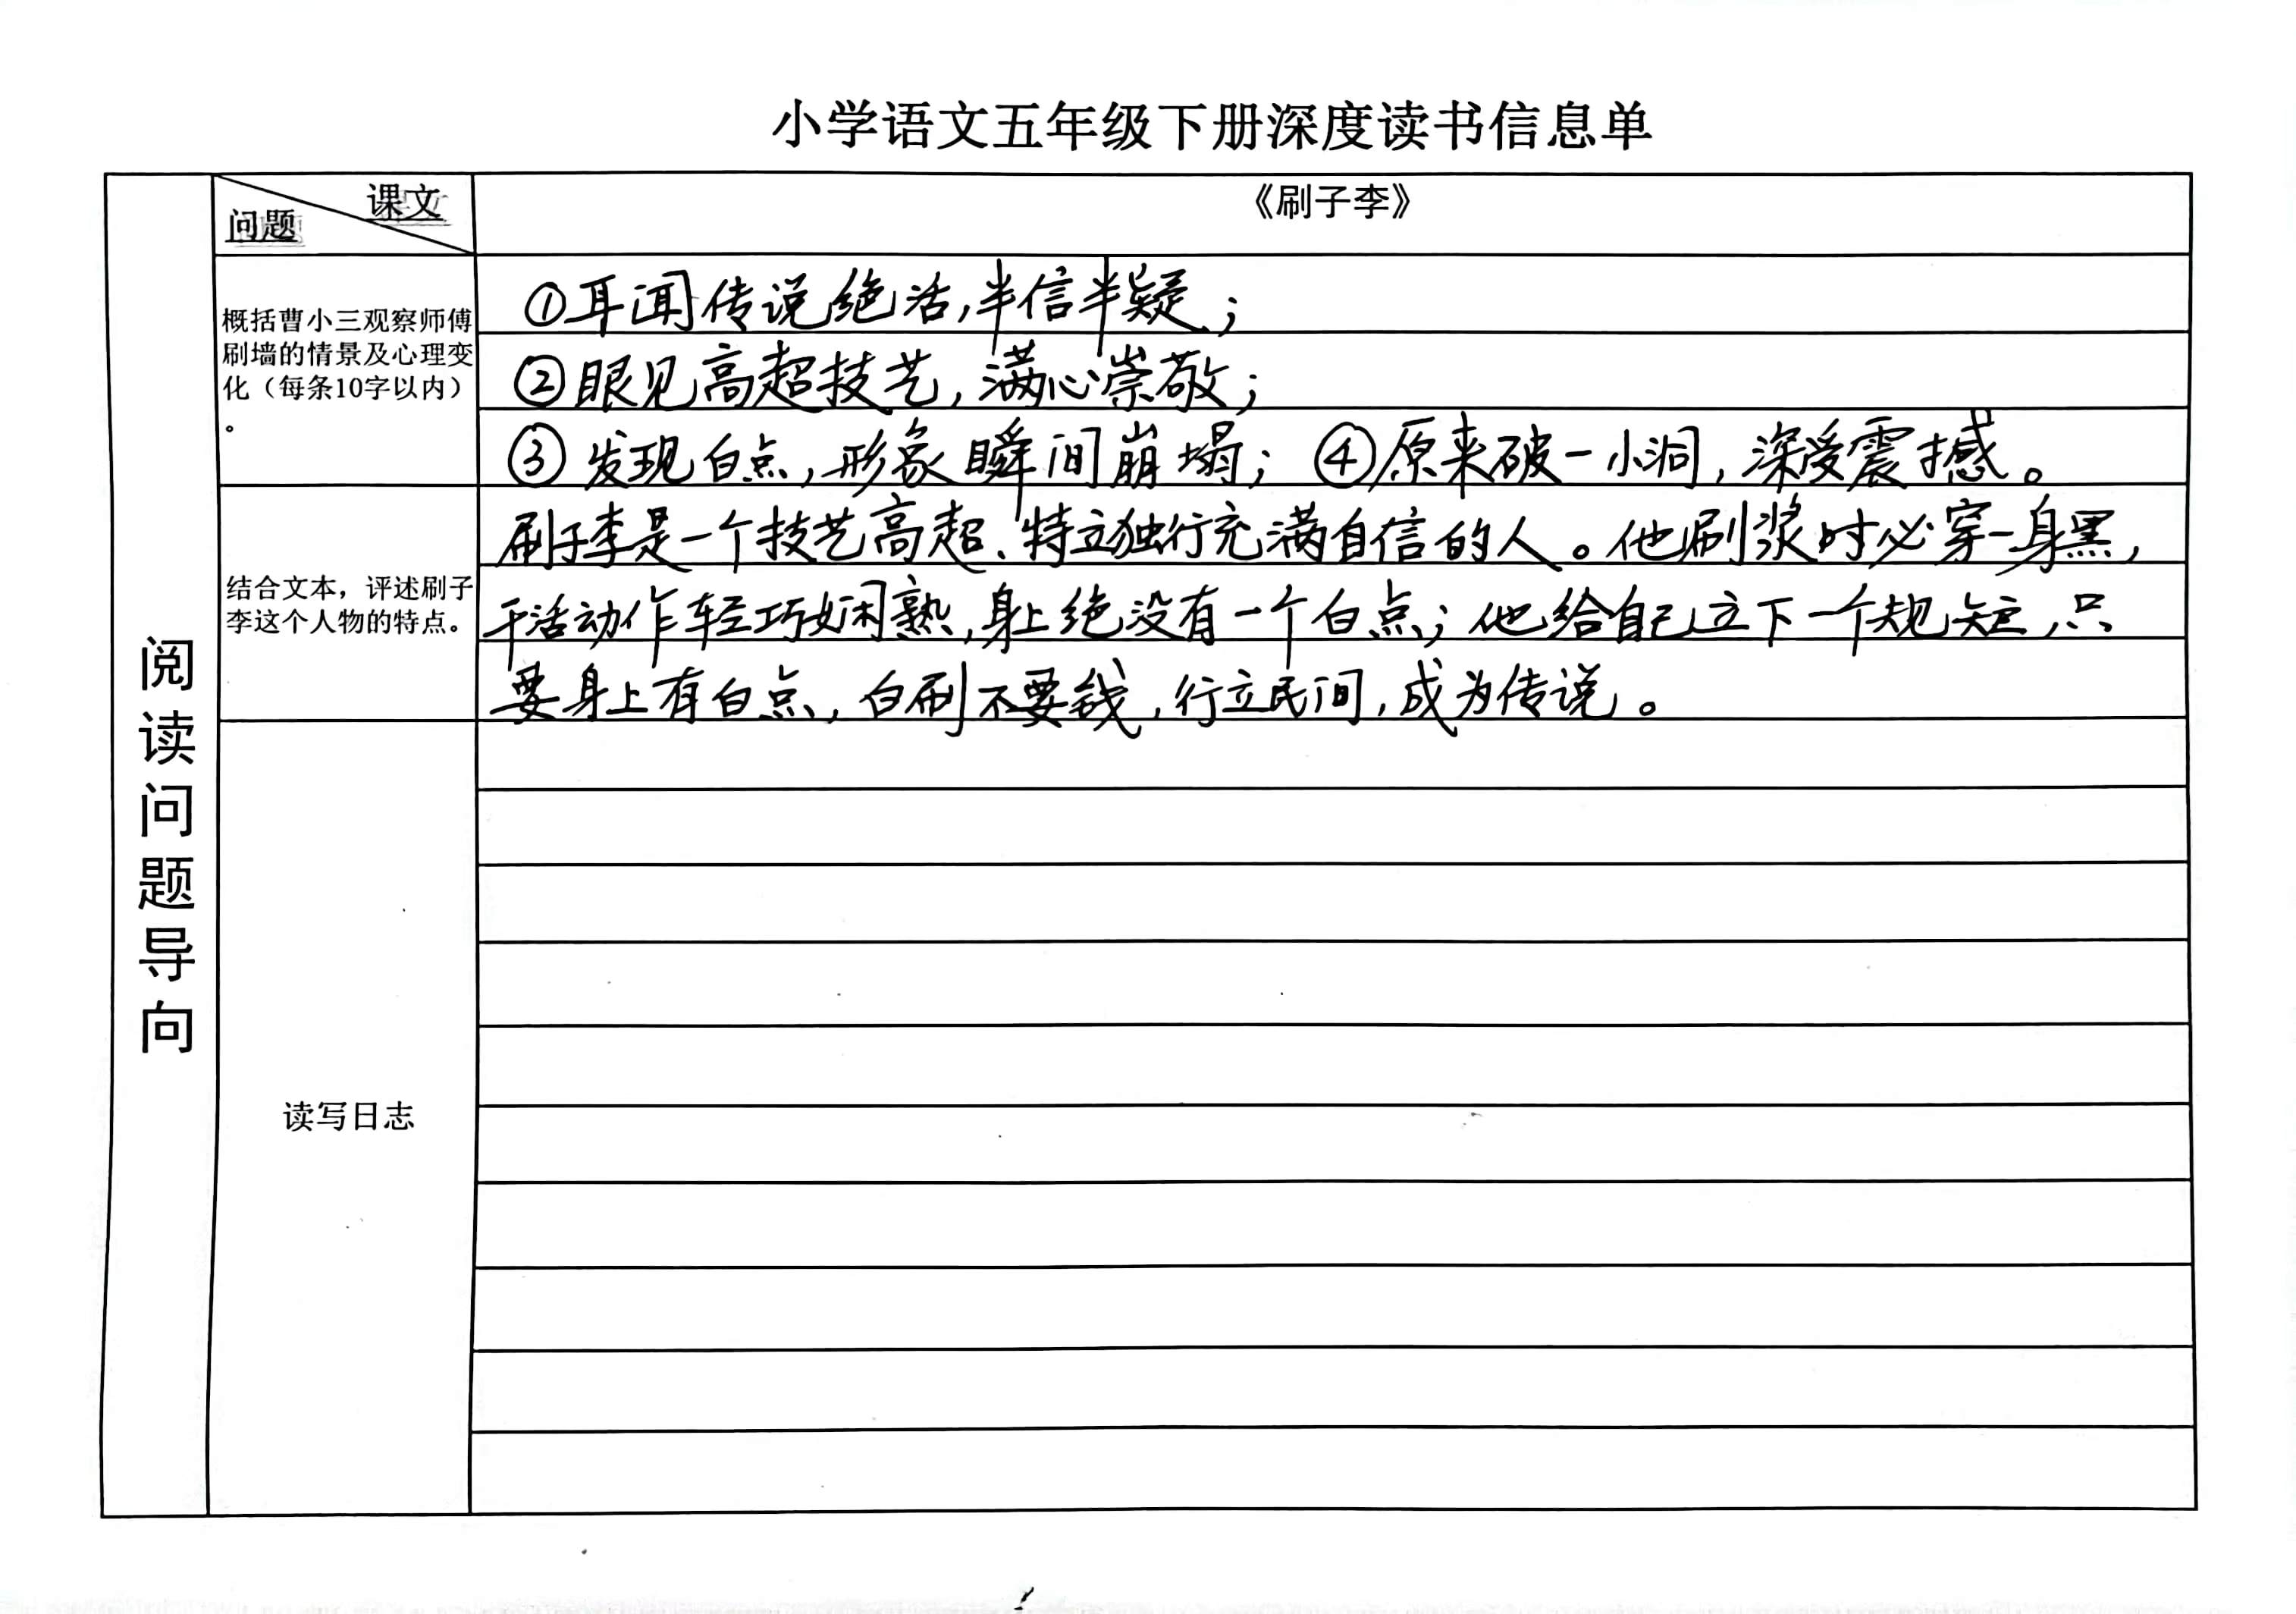 小学语文五年级下册深度读书信息单
课文
问题
《刷子李》
阅读问题导向
概括曹小三观察师傅
刷墙的情景及心理变
化（每条10字以内）
。
①耳闻传说绝活,半信半疑；
②眼见高超技艺,满心崇敬；
③发现白点,形象瞬间崩塌；④原来破一小洞,深受震撼。
结合文本，评述刷子
李这个人物的特点。
刷子李是一个技艺高超、特立独行充满自信的人。他刷浆时必穿一身黑,
干活动作轻巧娴熟,身上绝没有一个白点；他给自己立下一个规矩,只
要身上有白点,白刷不要钱,行立民间,成为传说。
读写日志